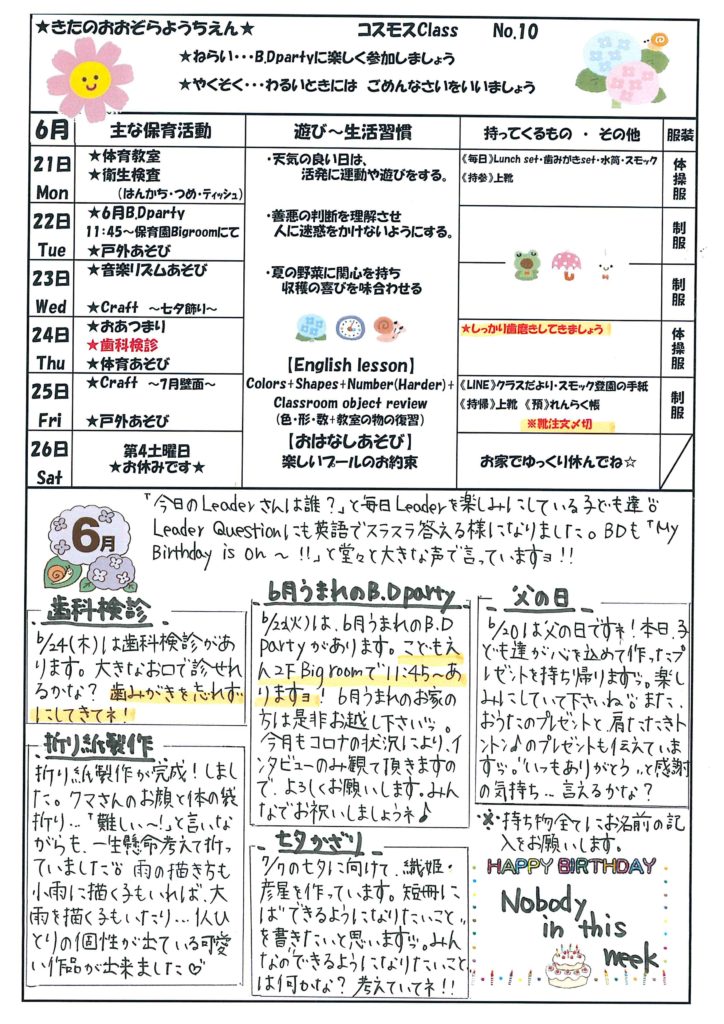 ★きたのおおぞらようちえん★ コスモスClass No.10
★ねらい・・・B,Dpartyに楽しく参加しましょう
★やくそく・・・わるいときには ごめんなさいをいいましょう
6月 主な保育活動 遊び～生活習慣 持ってくるもの ・ その他 服装
21日 Mon
★体育教室
★衛生検査
(はんかち・つめ・ティッシュ)
・天気の良い日は、
活発に運動や遊びをする。
《毎日》Lunch set・歯みがきset・水筒・スモック
《持参》上靴
体操服
22日 Tue
★6月B,Dparty
11:45～保育園Bigroomにて
★戸外あそび
・善悪の判断を理解させ
人に迷惑をかけないようにする。
制服
23日 Wed
★音楽リズムあそび
★Craft ～七夕飾り～
・夏の野菜に関心を持ち
収穫の喜びを味合わせる
制服
24日 Thu
★おあつまり
★歯科検診
★体育あそび
★しっかり歯磨きしてきましょう
体操服
【English lesson】
Colors+Shapes+Number(Harder)+
Classroom object review
(色・形・数+教室の物の復習)
25日 Fri
★Craft ～7月壁面～
★戸外あそび
《LINE》クラスだより・スモック登園の手紙
《持帰》上靴 《預》れんらく帳
※靴注文〆切
制服
26日 Sat
第4土曜日
★お休みです★
【おはなしあそび】
楽しいプールのお約束
お家でゆっくり休んでね☆
6月
「今日のLeaderさんは誰?」と毎日Leaderを楽しみにしている子ども達
Leader Questionにも英語でスラスラ答える様になりました。BDも「My
Birthday is on ～ !!」と堂々と大きな声で言っていますョ!!
歯科検診
6/24(木)は歯科検診があ
ります。大きなお口で診せれ
るかな? 歯みがきを忘れず
にしてきてネ!
折り紙製作
折り紙製作が完成!しまし
た。クマさんのお顔と体の袋
折り…「難しい～!」と言いな
がらも、一生懸命考えて折っ
ていました 雨の描き方も
小雨に描く子もいれば、大
雨を描く子もいたり…1人ひ
とりの個性が出ている可愛
い作品が出来ました♡
6月うまれのB.D party
6/22(火)は、6月うまれのB.D
partyがあります。こどもえ
ん2F Big roomで11:45～あ
りますョ! 6月うまれのお家
の方は是非お越し下さい。
今月もコロナの状況により、イ
ンタビューのみ観て頂きますの
で、よろしくお願いします。みん
なでお祝いしましょうネ♪
七夕かざり
7/7の七夕に向けて、織姫・
彦星を作っています。短冊に
は"できるようになりたいこと"
を書きたいと思います。みん
なの"できるようになりたいこと"
は何かな? 考えていてネ!!
父の日
6/20は父の日ですネ!本日、子
ども達が心を込めて作ったプ
レゼントを持ち帰ります。楽し
みにしていて下さいね また、
おうたのプレゼントと、肩たたきト
ントン♪のプレゼントも伝えていま
す。"いつもありがとう"と感謝
の気持ち… 言えるかな?
※持ち物全てにお名前の記
入をお願いします。
HAPPY BIRTHDAY
Nobody
in this
week